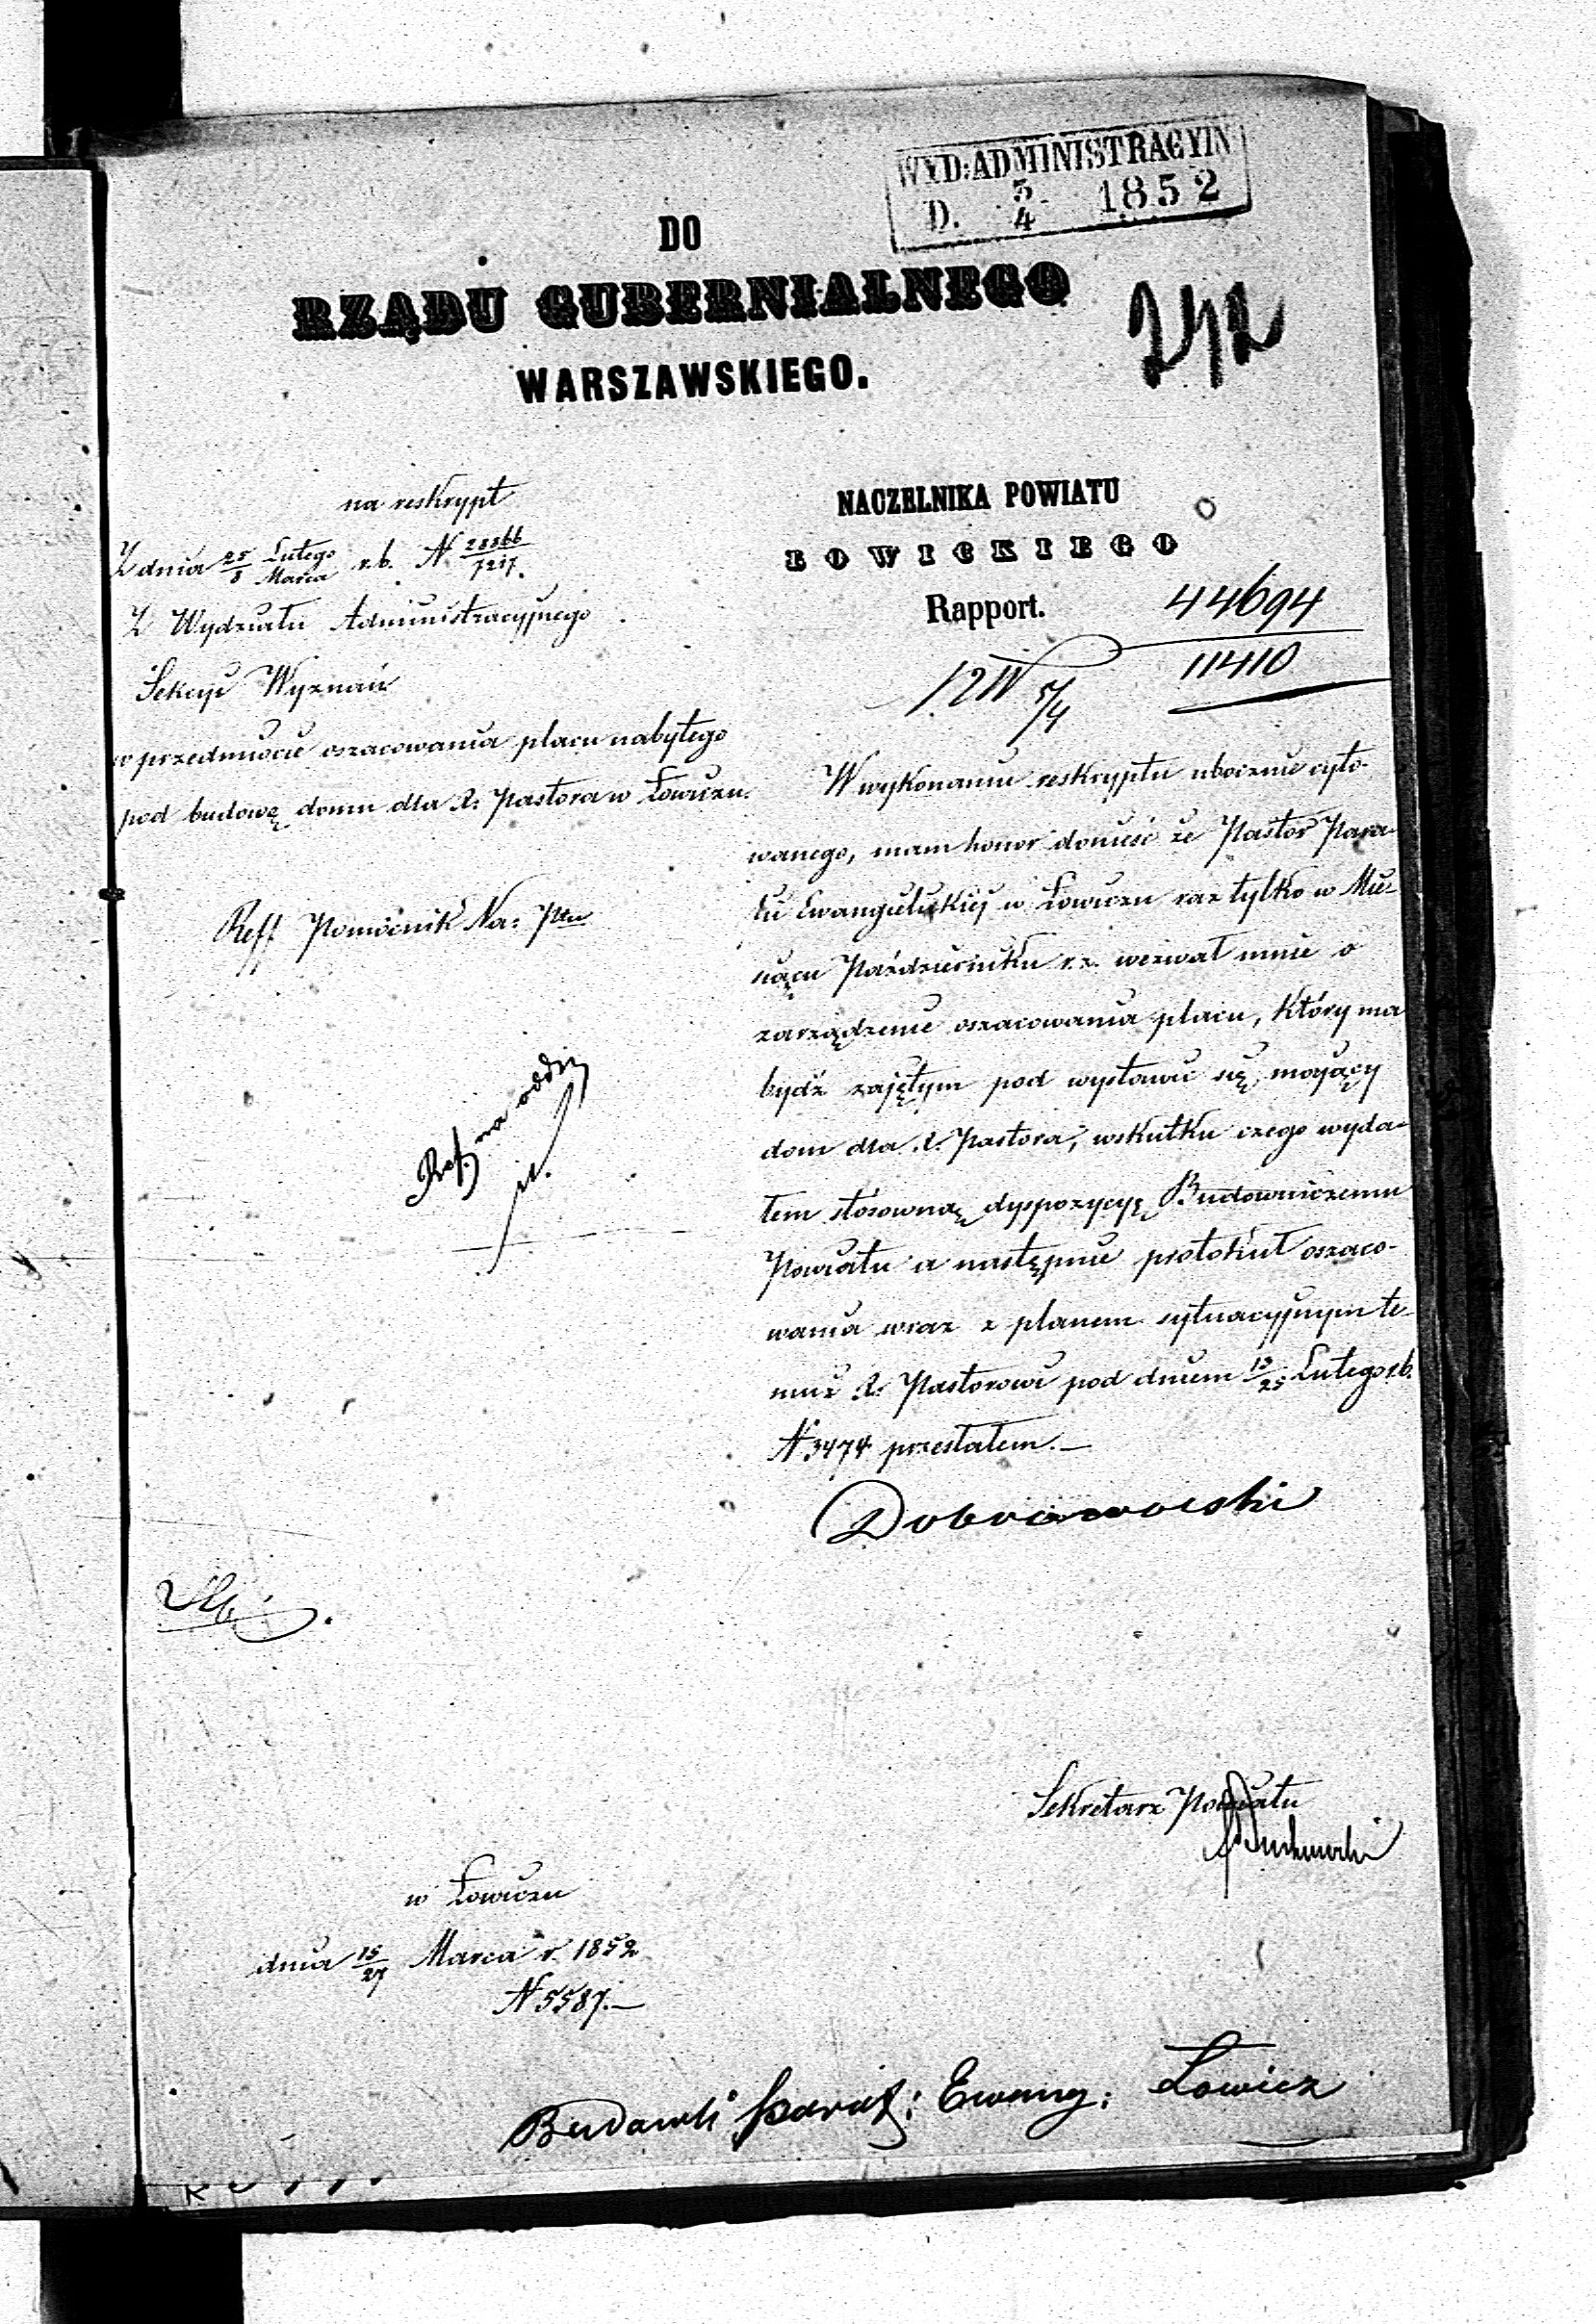 WYD: ADMINISTRACYIN
D. 5/4 1852
DO
RZĄDU GUBERNIALNEGO
WARSZAWSKIEGO.
242
na reskrypt
Z dnia 25/8 Lutego/Marca r.b. N 28866/7217.
Z Wydziału Administracyjnego
Sekcyi Wyznań
w przedmiocie oszacowania placu nabytego
pod budowę domu dla X. Pastora w Łowiczu.
Reff Pomocnik Na: Ptu
Ref. na oddz
NACZELNIKA POWIATU
ŁOWICKIEGO
Rapport.
44694
11410
5/4
W wykonaniu reskryptu ubocznie cyto-
wanego, mam honor donieść że Pastor Para-
fii Ewangelickiej w Łowiczu raz tylko w Mie-
siącu Październiku r.z. wezwał mnie o
zarządzenie oszacowania placu, który ma
bydź zajętym pod wystawić się mający
dom dla X. Pastora, wskutku czego wyda-
łem stósowną dyspozycyę Budowniczemu
Powiatu a następnie protokuł oszaco-
wania wraz z planem sytuacyjnym te-
muż X. Pastorowi pod dniem 13/25 Lutego r.b.
N 3474 przesłałem.—
Dobrowolski
Sekretarz Powiatu
w Łowiczu
dnia 15/27 Marca r. 1852
N 5587.—
Budowli Paraf: Ewang: Łowicz